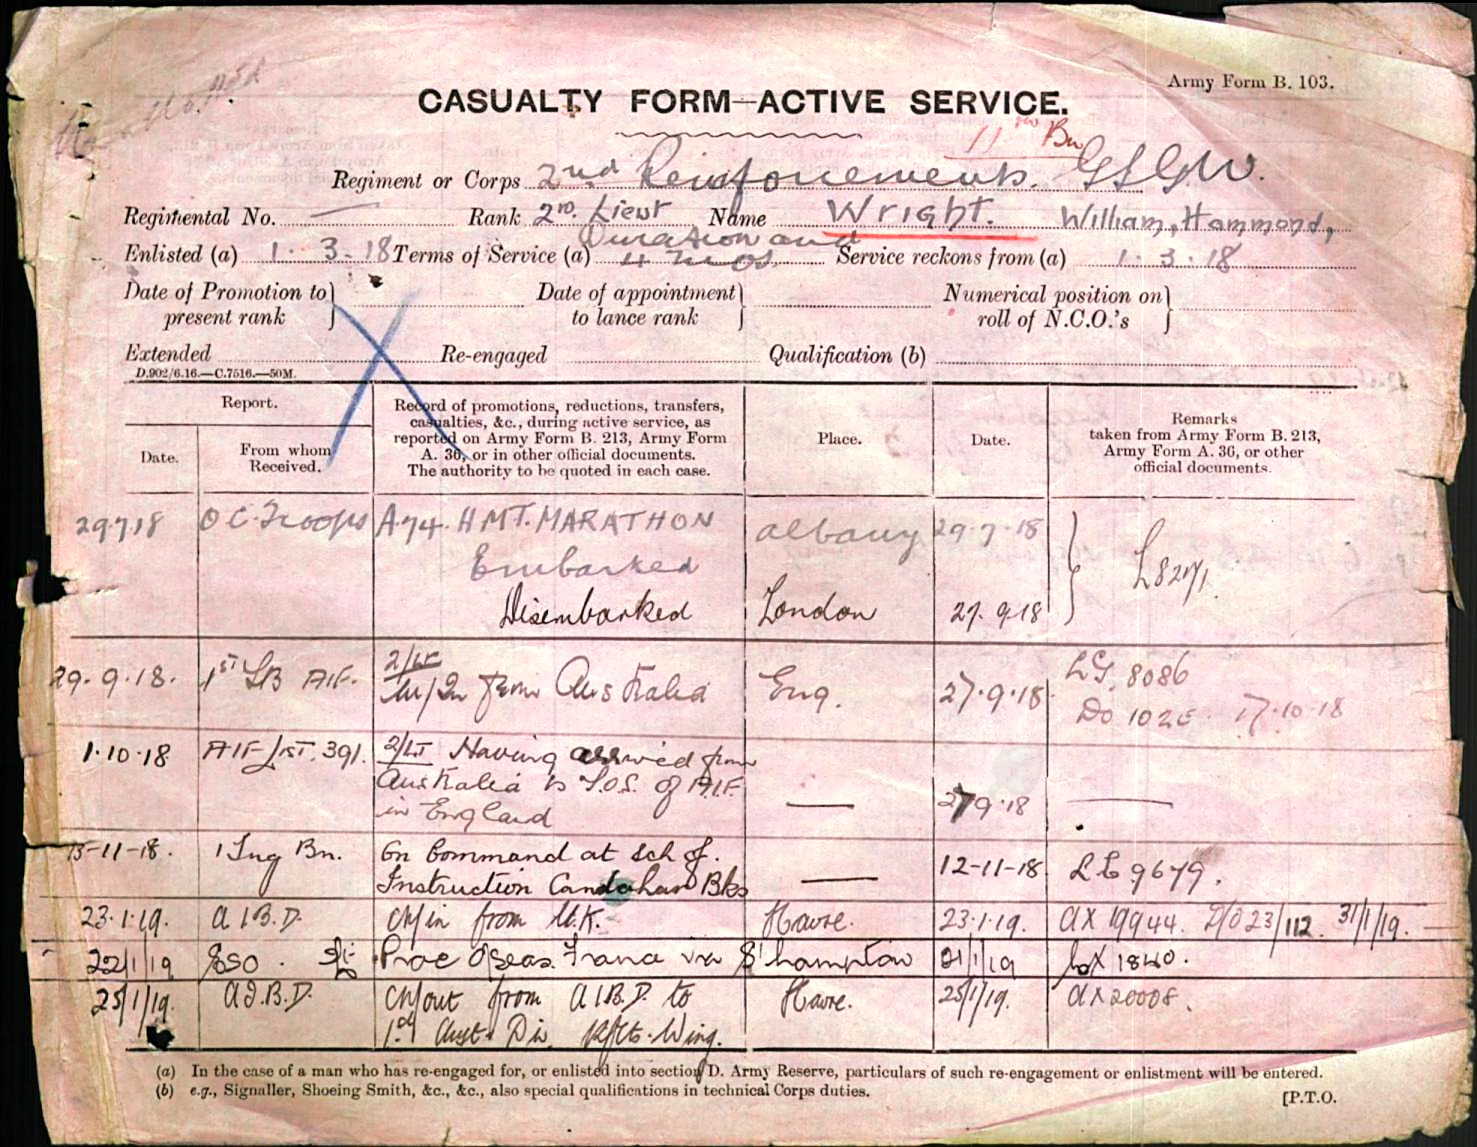 Army Form B. 103.
CASUALTY FORM—ACTIVE SERVICE.
11 Bn
Regiment or Corps 2nd Reinforcements. GSGW.
Regimental No. — Rank 2nd. Lieut Name Wright. William, Hammond,
Duration and
Enlisted (a) 1. 3. 18 Terms of Service (a) 4 mos. Service reckons from (a) 1. 3. 18
Date of Promotion to present rank Date of appointment to lance rank Numerical position on roll of N.C.O.'s
Extended Re-engaged Qualification (b)
D.902/6.16.—C.7516.—50M.
Report.
Date.
From whom
Received.
Record of promotions, reductions, transfers,
casualties, &c., during active service, as
reported on Army Form B. 213, Army Form
A. 36, or in other official documents.
The authority to be quoted in each case.
Place.
Date.
Remarks
taken from Army Form B. 213,
Army Form A. 36, or other
official documents.
29.7.18 O C Troops A74. HMT. MARATHON Albany 29.7.18
Embarked
Disembarked London 27.9.18
29.9.18. 1st TB AIF. 2/Lt
M/In from Australia Eng. 27.9.18 LG. 8086
DO 102 17.10.18
1.10.18 AIF List. 391. 2/Lt Having arrived from
Australia is T.O.S. of A.I.F.
in England — 27.9.18 —
15-11-18. 1 Tng Bn. On Command at Sch of.
Instruction Candahar Bks — 12-11-18 9679.
23.1.19. A I B.D. M/in from U.K. Havre. 23.1.19. AX 19944. D/O 23/112. 31/1/19.
22/1/19 Proc O'seas. France via S'hampton 21/1/19 1840.
25/1/19. A I.B.D. M/out from A I B.D. to Havre. 25/1/19. AX 20008.
1st Aust. Div. Rfts. Wing.
(a) In the case of a man who has re-engaged for, or enlisted into section D. Army Reserve, particulars of such re-engagement or enlistment will be entered.
(b) e.g., Signaller, Shoeing Smith, &c., &c., also special qualifications in technical Corps duties.
[P.T.O.